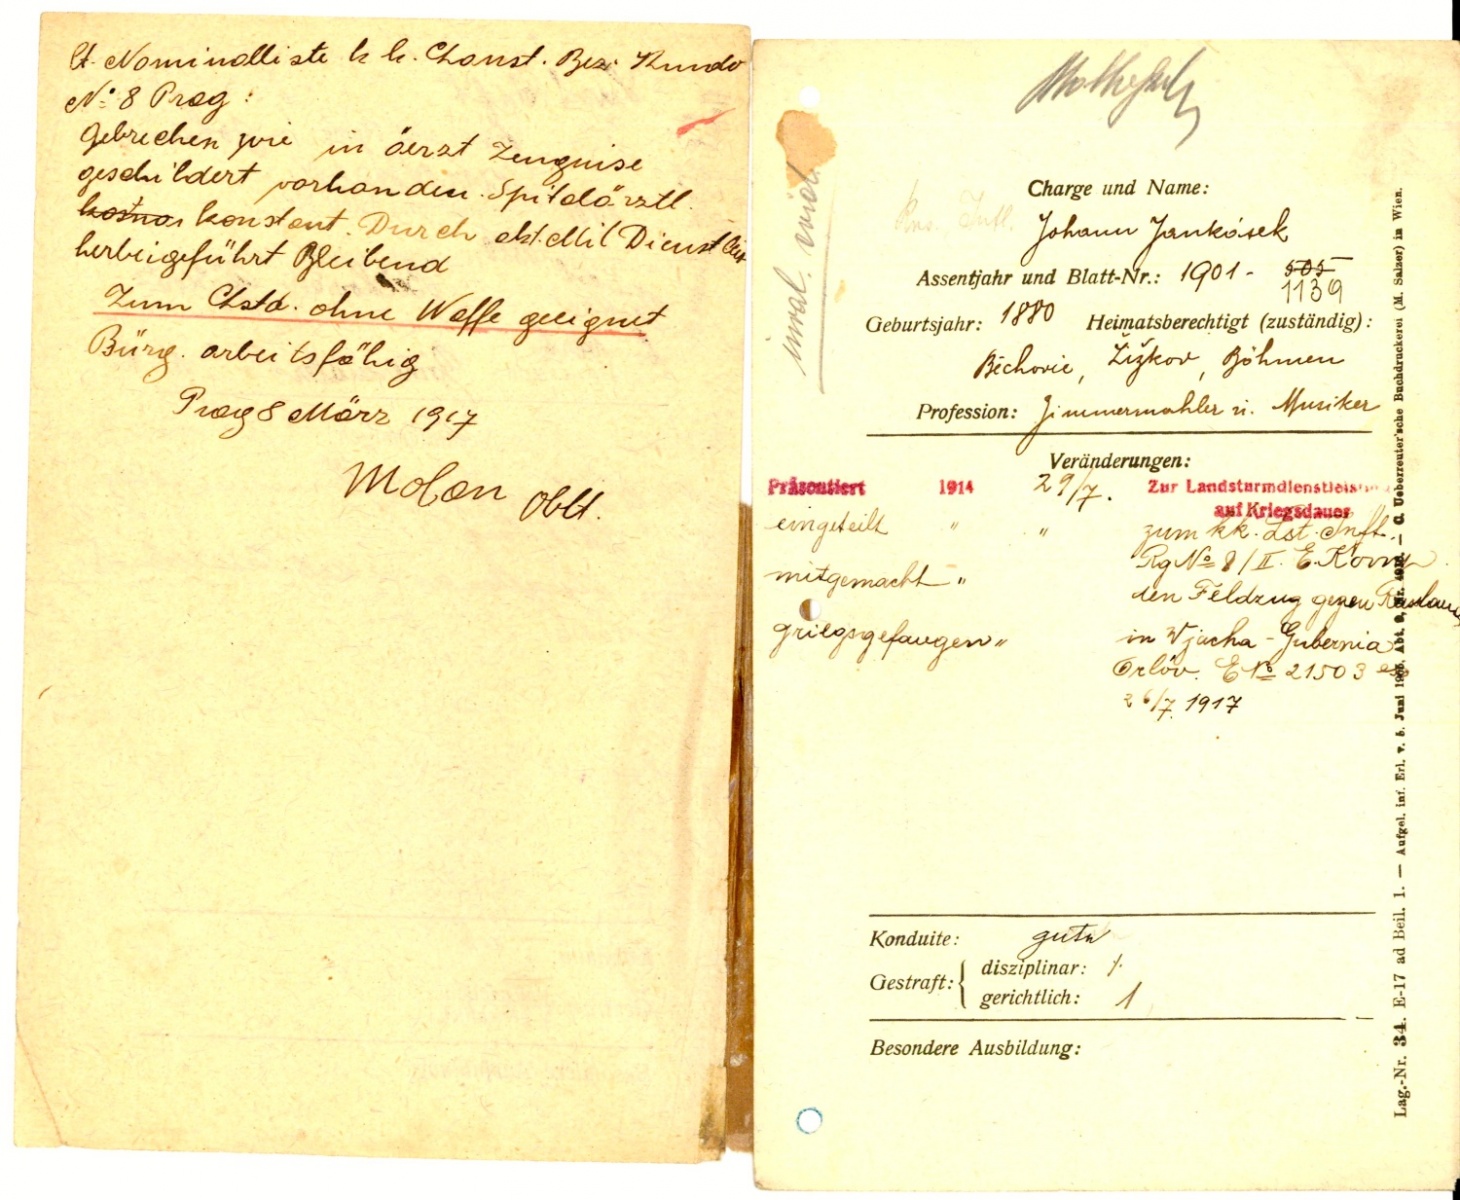 lt. Nominalliste k k. Lanst. Bez. Kundo
No 8 Prag:
Gebrechen wie in äerzt Zeugnise
geschildert vorhanden. Spitalärztl.
konstant. Durch akt. Mil Dienst
herbeigeführt Bleibend
Zum Lstd. ohne Waffe geeignet
Bürg. arbeitsfähig
Prag 8 März 1917
Oblt.
inval.
Charge und Name:
Johann Jankósek
Assentjahr und Blatt-Nr.: 1901 - 505
1139
Geburtsjahr: 1880 Heimatsberechtigt (zuständig):
Běchovic, Žižkov, Böhmen
Profession: Zimmermahler u. Musiker
Veränderungen:
Präsentiert 1914 29/7. Zur Landsturmdienstleist
auf Kriegsdauer
eingeteilt " " zum kk. Lst. Inft.
Rg No 8/II. E.
mitgemacht " den Feldzug gegen Russland
griegsgefangen " in Wjacha - Gubernia
Orlöv. E No 21503
26/7. 1917
Konduite: gute
Gestraft: disziplinar: /.
gerichtlich: 1
Besondere Ausbildung:
Lag.-Nr. 34. E-17 ad Beil. 1. — Aufgel. inf. Erl. v. 5. Juni Abt. — C. Ueberreuter'sche Buchdruckerei (M. Salzer) in Wien.